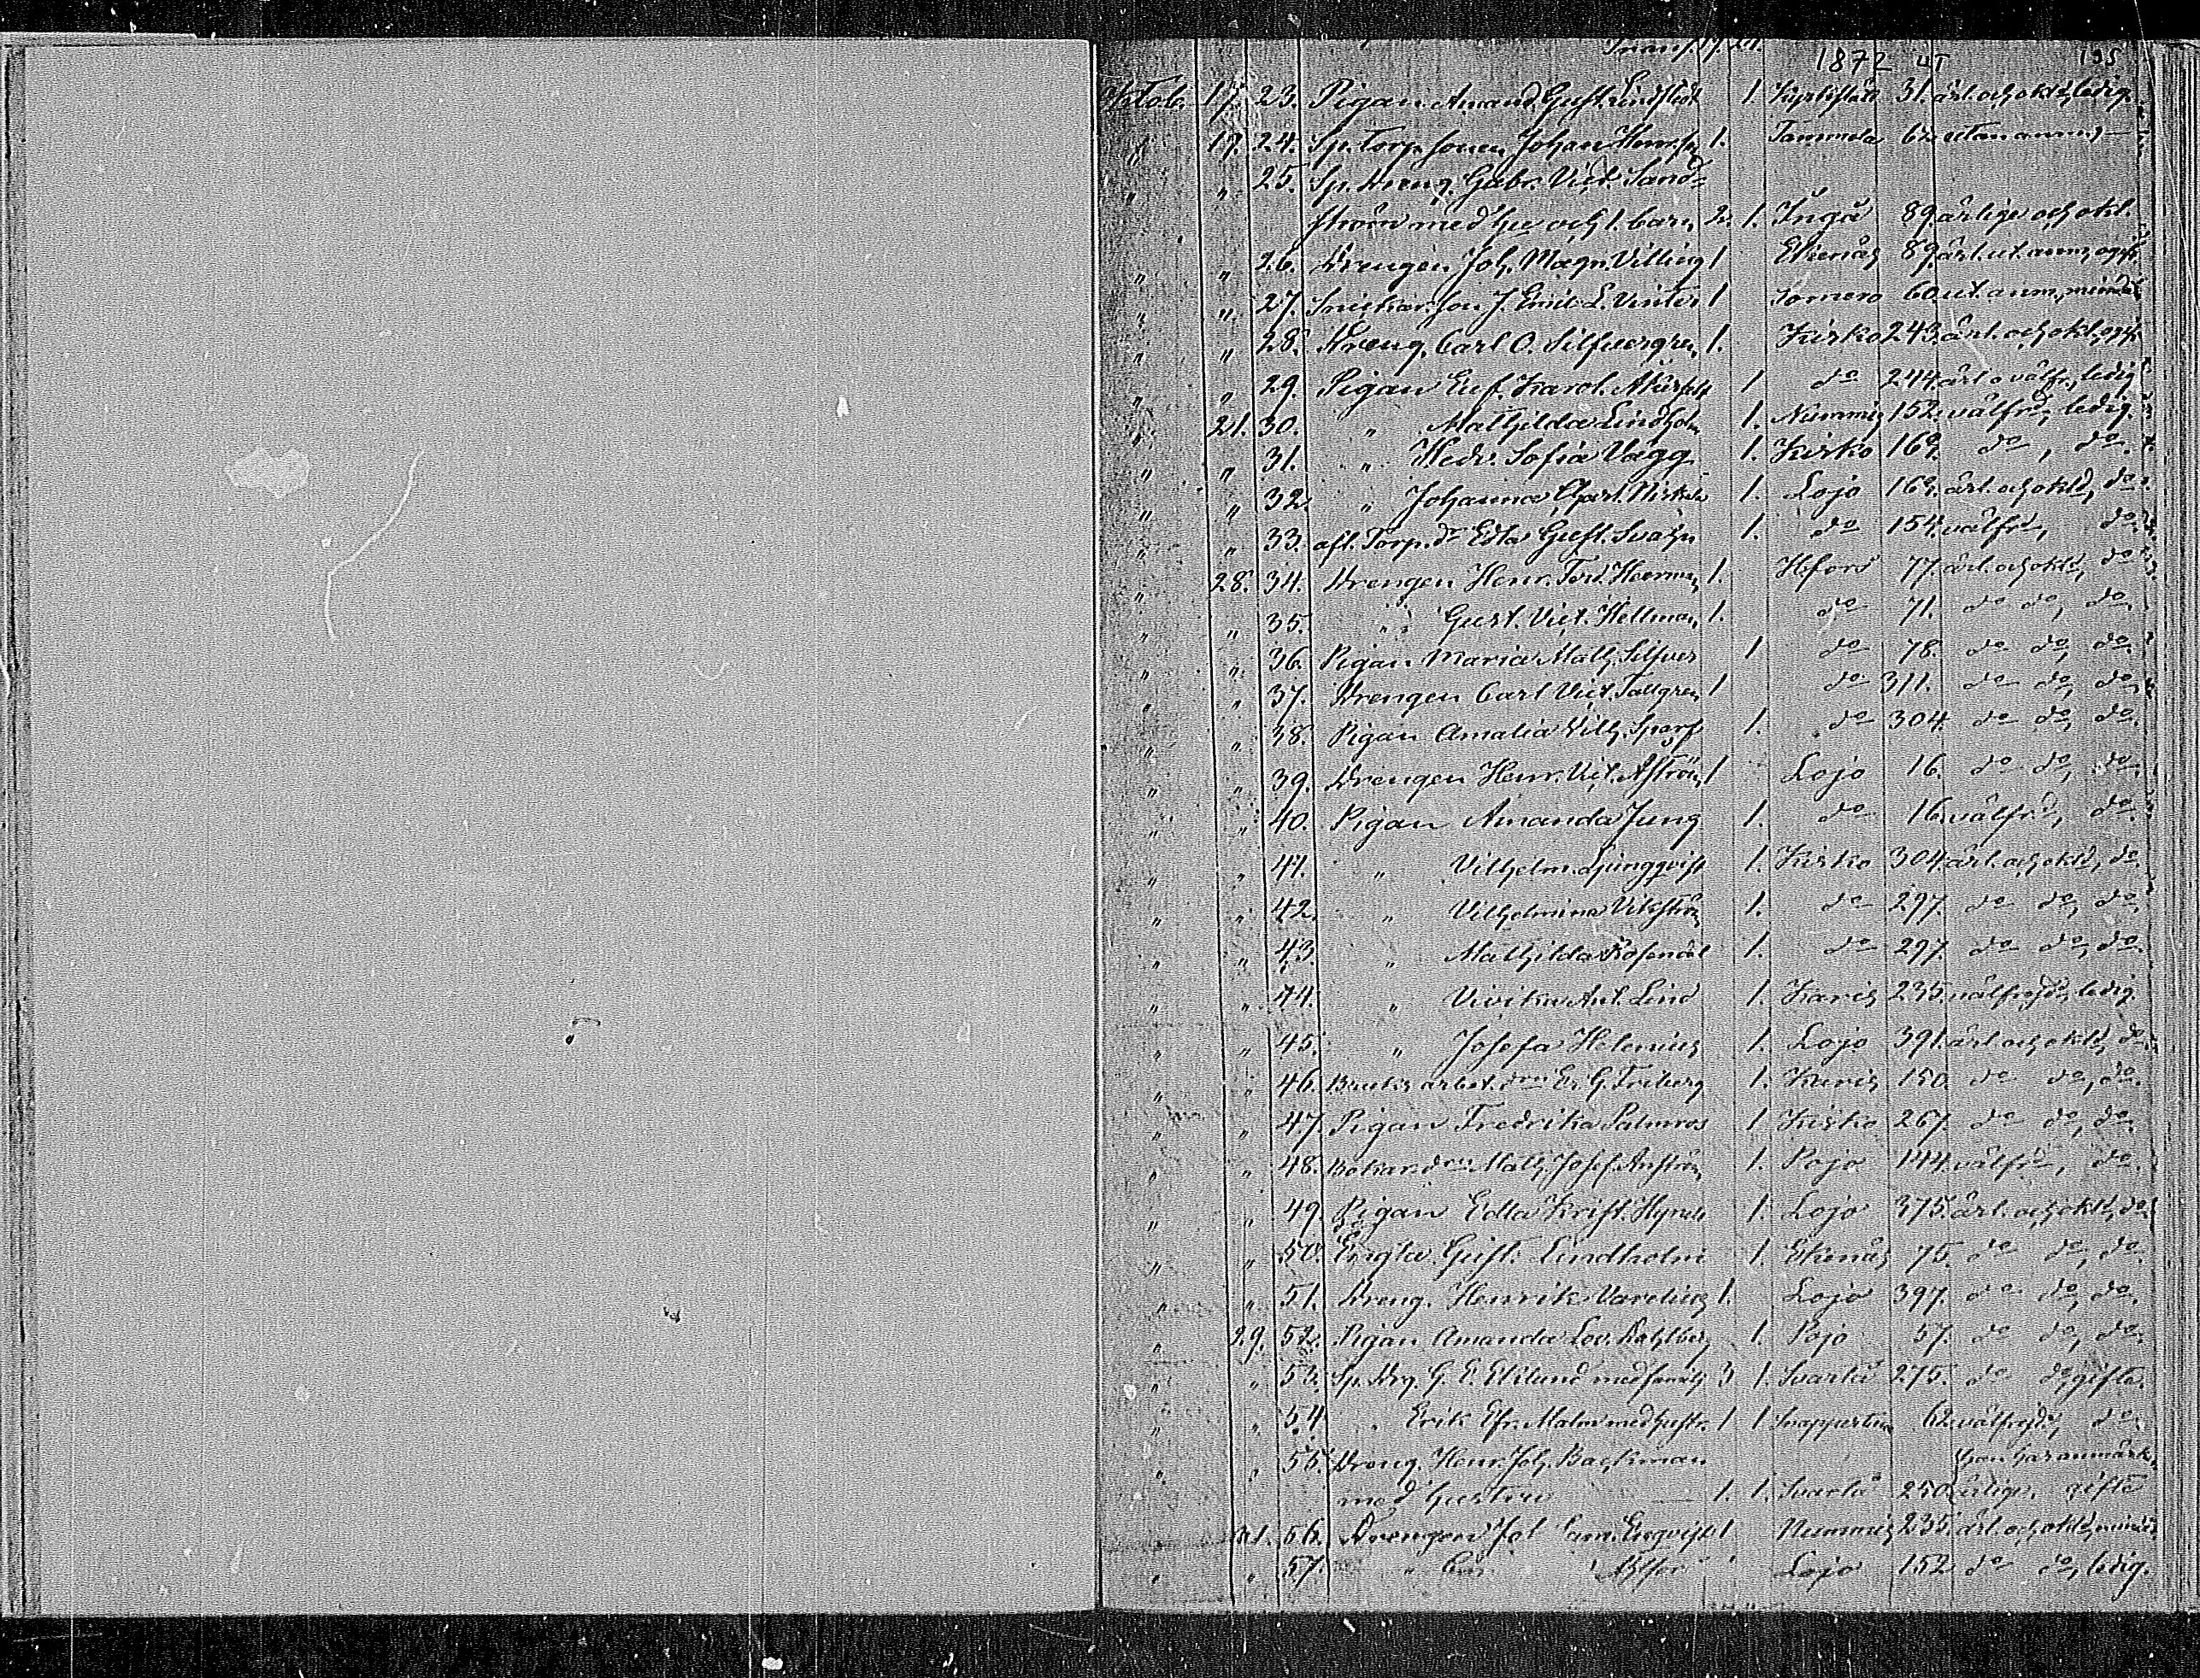 Transp. 17. 21.
1872 UT 195
Oktob. 17. 23. Pigan Amand. Gust. Lindstedt 1. 31. ärl. och oktd, ledig
" 17. 24. Sp. Torp. sonen Johan Henr. 1. Tammela 62 utan anm.
" " 25. Sp. Dreng. Gabr. Vict. Sand=
ström med hu och 1. barn 2. 1. Ingå 89. ärliga och okl.
" " 26. Drengen Joh. Magn. Villing 1 Ekenäs 89. ärl. ut. anm,
" " 27. Snickar. son J. Emil L. Vinter 1 Somero 60. ut. anm.,
" " 28. Dreng. Carl O. Silfvergren 1. Kisko 243. ärl. och okl.
" " 29. Pigan Euf. Karol. 1 do 244. ärl o välfr., ledig
" 21. 30. " Mathilda Lindholm 1. Nummis 152. välfrd, ledig.
" " 31. " Hedv. Sofia Vägg 1. Kisko 169. do, do.
" " 32. " Johanna Charl. 1. Lojo 169. ärl. och oktd, do.
" " 33. afl. Torp. dr Edla Gust. Svahn 1. do 154. välfrd, do.
" 28. 34. Drengen Henr. Ferd. Heerman 1. Hfors 77. ärl. och oktd, do
" " 35. " Gust. Vict. Hellman 1. do 71. do do, do
" " 36. Pigan Maria Math. Silfver 1 do 78. do do, do.
" " 37. Drengen Carl Vict. Tallgren 1 do 311. do do, do
" " 38. Pigan Amalia Vilh. Sparf 1. do 304 do do, do.
" " 39. Drengen Henr. Vict. Åström 1 Lojo 16. do do, do.
" " 40. Pigan Amanda Jung 1. do 16. välfrd, do.
" " 41. " Vilhelm. Ljungqvist 1. Kisko 304. ärl. och oktd, do.
" " 42. " Vilhelmina Vikström 1. do 297. do do, do.
" " 43. " Mathilda Rosendal 1. do 297. do do, do.
" " 44. " Vivika Ant. Lind 1. Karis 235. välfrejd, ledig.
" " 45. " Josefa Helenius 1. Lojo 391. ärl. och oktd, do.
" " 46. Bruks arbet. drn Ev. G. Friberg 1. Karis 150 do do, do.
" " 47. Pigan Fredrika Palmros 1 Kisko 267 do do, do.
" " 48. Math. Josef. 1. Pojo 144. välfrd, do.
" " 49. Pigan Edla Krist. 1. Lojo 375. ärl. och oktd, do
" " 50. Gust. Lindholm 1. Ekenäs 75. do do, do.
" " 51. Dreng. Henrik Varelius 1. Lojo 397. do do, do.
" 29. 52. Pigan Amanda Lov. Dahlberg 1. Pojo 57. do do, do.
" " 53. Sp. drg. G. E. Eklund med familj 3 1. Svartå 275. do do, gifta.
" " 54. " Erik Efr. Malm med hustr. 1 1 62. välfrejd, do.
" " 55. Dreng. Henr. Joh. Backman han har anmärk.
med hustru 1. 1. Svartå 250. ärliga. gifta
" 31. 56. Drengen Joh Sam. Engvist 1 Nummis 235. ärl. och oktd,
" " 57. " Lojo 152 do do, ledig.